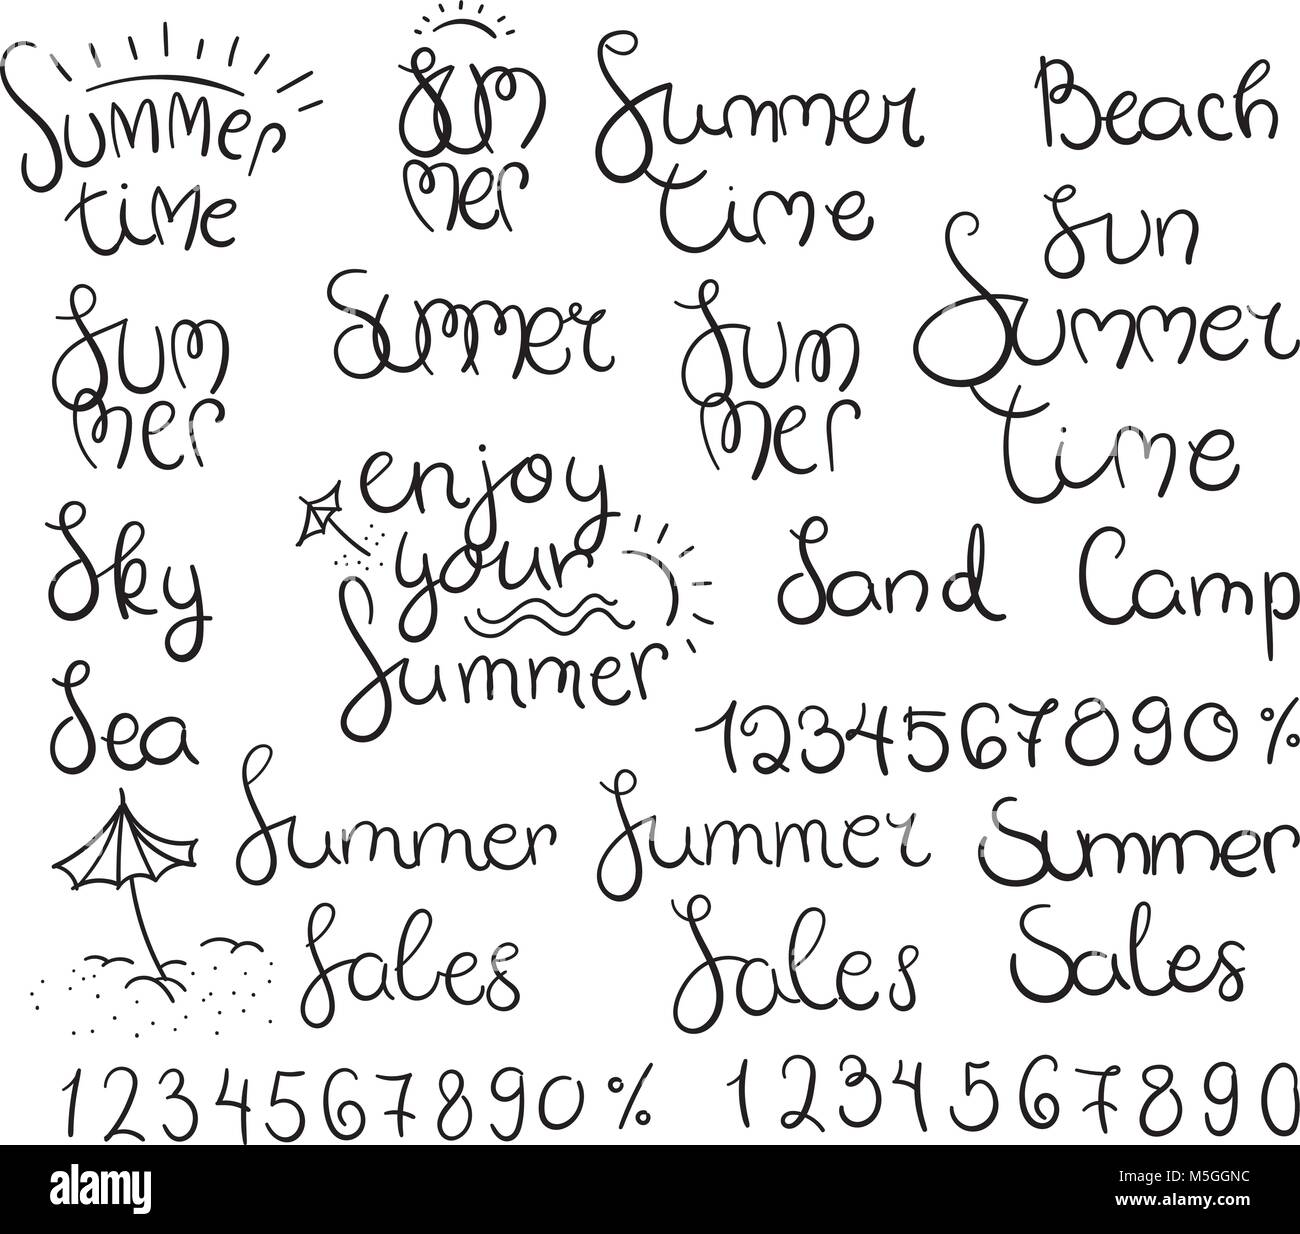 Summer
time
Sum
mer
Summer
time
Beach
Sun
Sum
mer
Summer
Sum
mer
Summer
time
enjoy
your
Summer
Sky
Sand Camp
Sea
1234567890%
Summer
Sales
Summer
Sales
Summer
Sales
1234567890%
1234567890
alamy
Image ID: M5GGNC
www.alamy.com